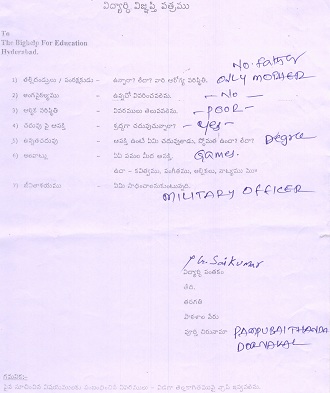 విద్యార్థి విజ్ఞప్తి పత్రము
To
The Bighelp For Education
Hyderabad.
No. Father
1) తల్లిదండ్రులు / సంరక్షకుడు - ఉన్నారా? లేరా? వారి ఆరోగ్య పరిస్థితి. ONLY MOTHER
2) అంగవైకల్యము - ఉన్నచో వివరించవలెను. - No -
3) ఆర్థిక పరిస్థితి - వివరములు తెలుపవలెను. - POOR -
4) చదువు పై ఆసక్తి - శ్రద్ధగా చదువుచున్నారా? - Yes -
5) ఉన్నతచదువు - ఆసక్తి ఉంటే ఏమి చదువుతారు, స్తోమత ఉందా? లేదా? Degree
6) అలవాట్లు - ఏఏ పనుల మీద ఆసక్తి. Games.
ఉదా - కవిత్వము, సంగీతము, ఆటలు, నాట్యము
7) జీవితాశయము - ఏమి సాధించాలనుకుంటున్నారు.
MILITARY OFFICER
P.G. Saikumar
విద్యార్థి సంతకం
పేరు
తరగతి
పాఠశాల పేరు
పూర్తి చిరునామా PAMPUBAI THANDA
DORNAKAL
గమనిక:-